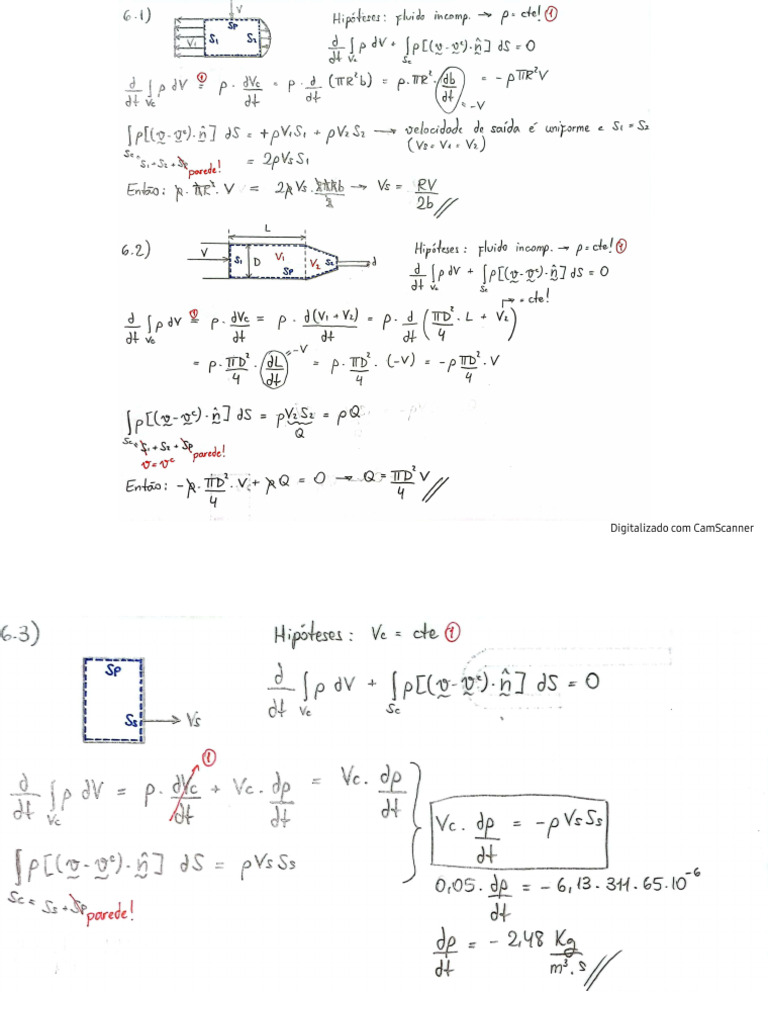 6.1)
V
Sp
V₁
S₁
S₂
Hipóteses: fluido incomp. → ρ = cte! ①
d/dt ∫Vc ρ dV + ∫Sc ρ[(v - vᶜ)·n̂] dS = 0
d/dt ∫Vc ρ dV =① ρ · dVc/dt = ρ · d/dt (πR²b) = ρ·πR²· (db/dt) = - ρπR²V
= -V
∫Sc ρ[(v - vᶜ)·n̂] dS = +ρV₁S₁ + ρV₂S₂ → velocidade de saída é uniforme e S₁ = S₂
Sc = S₁ + S₂ + Sp parede!
(V₂ = V₁ = V₂)
= 2ρVsS₁
Então: ρ·πR²·V = 2ρVs · 2πRb/2 → Vs = RV/2b
6.2)
L
V
S₁
D
V₁
Sp
V₂
S₂
d
Hipóteses: Fluido incomp. → ρ = cte! ①
d/dt ∫Vc ρ dV + ∫Sc ρ[(v - vᶜ)·n̂] dS = 0
→ = cte!
d/dt ∫Vc ρ dV =① ρ · dVc/dt = ρ · d(V₁ + V₂)/dt = ρ · d/dt (πD²/4 · L + V₂)
= ρ · πD²/4 · (dL/dt) = ρ · πD²/4 · (-V) = - ρ πD²/4 · V
= -V
∫Sc ρ[(v - vᶜ)·n̂] dS = ρV₂S₂ = ρQ
Q
Sc = S₁ + S₂ + Sp parede!
v = vᶜ
Então: - ρ · πD²/4 · V + ρQ = 0 → Q = πD²/4 V
Digitalizado com CamScanner
6.3)
Sp
Ss
Vs
Hipóteses: Vc = cte ①
d/dt ∫Vc ρ dV + ∫Sc ρ[(v - vᶜ)·n̂] dS = 0
①
d/dt ∫Vc ρ dV = ρ · dVc/dt + Vc · dρ/dt = Vc · dρ/dt
∫Sc ρ[(v - vᶜ)·n̂] dS = ρVsSs
Sc = Ss + Sp parede!
Vc · dρ/dt = - ρVsSs
0,05 · dρ/dt = - 6,13 · 311 · 65 · 10⁻⁶
dρ/dt = - 2,48 Kg/m³·s